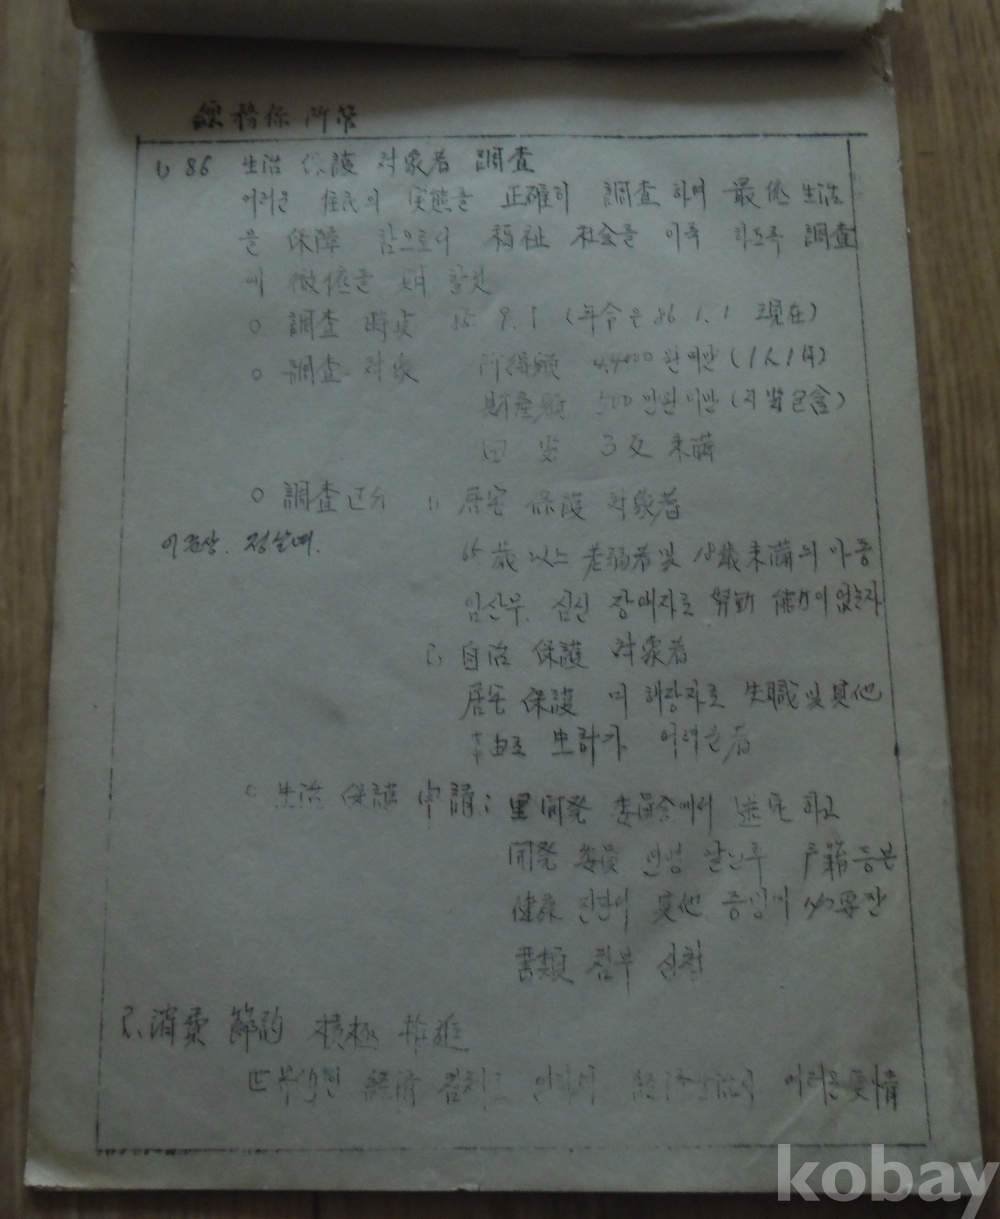 總務係 所管
1) 86 生活 保護 対象者 調査
어려운 住民의 実態를 正確히 調査하여 最低生活
을 保障 함으로서 福祉 社会를 이룩 하도록 調査
에 徹底를 期 할것
○ 調査 時点 85. 9. 1 (年令은 86. 1. 1 現在)
○ 調査 対象 所得額 44000원미만 (1人1月)
財産額 500만원미만 (포함)
田 畓 3反 未満
○ 調査区分 1) 居宅 保護 対象者
65歳以上 老弱者 및 18歳未満의 아동
임산부. 심신 장애자로 労動 能力이 없는자
2) 自活 保護 対象者
居宅 保護 미 해당자로 失職 및 其他
事由로 生計가 어려운者
○ 生活 保護 申請: 里 開発 委員会에서 選定하고
開発 委員 날인후 戸籍등본
健康 진단서 其他 증빙에 必要한
書類 첨부 신청
2) 消費 節約 積極 推進
経済 経済 어려운 実情